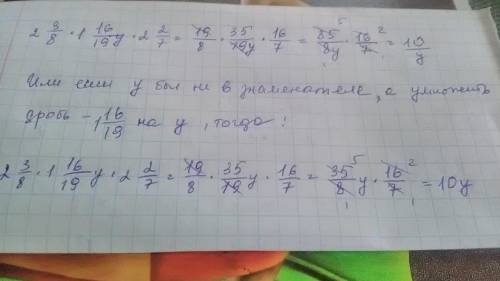 2 3/8 · 1 16/19y · 2 2/7 = 19/8 · 35/19y · 16/7 = 35⁵/8y · 16²/7 = 10/y
Или если у был не в знаменателе, а умножить
дробь – 1 16/19 на у, тогда:
2 3/8 · 1 16/19 y · 2 2/7 = 19/8 · 35/19 y · 16/7 = 35⁵/8₁ y · 16²/7₁ = 10y